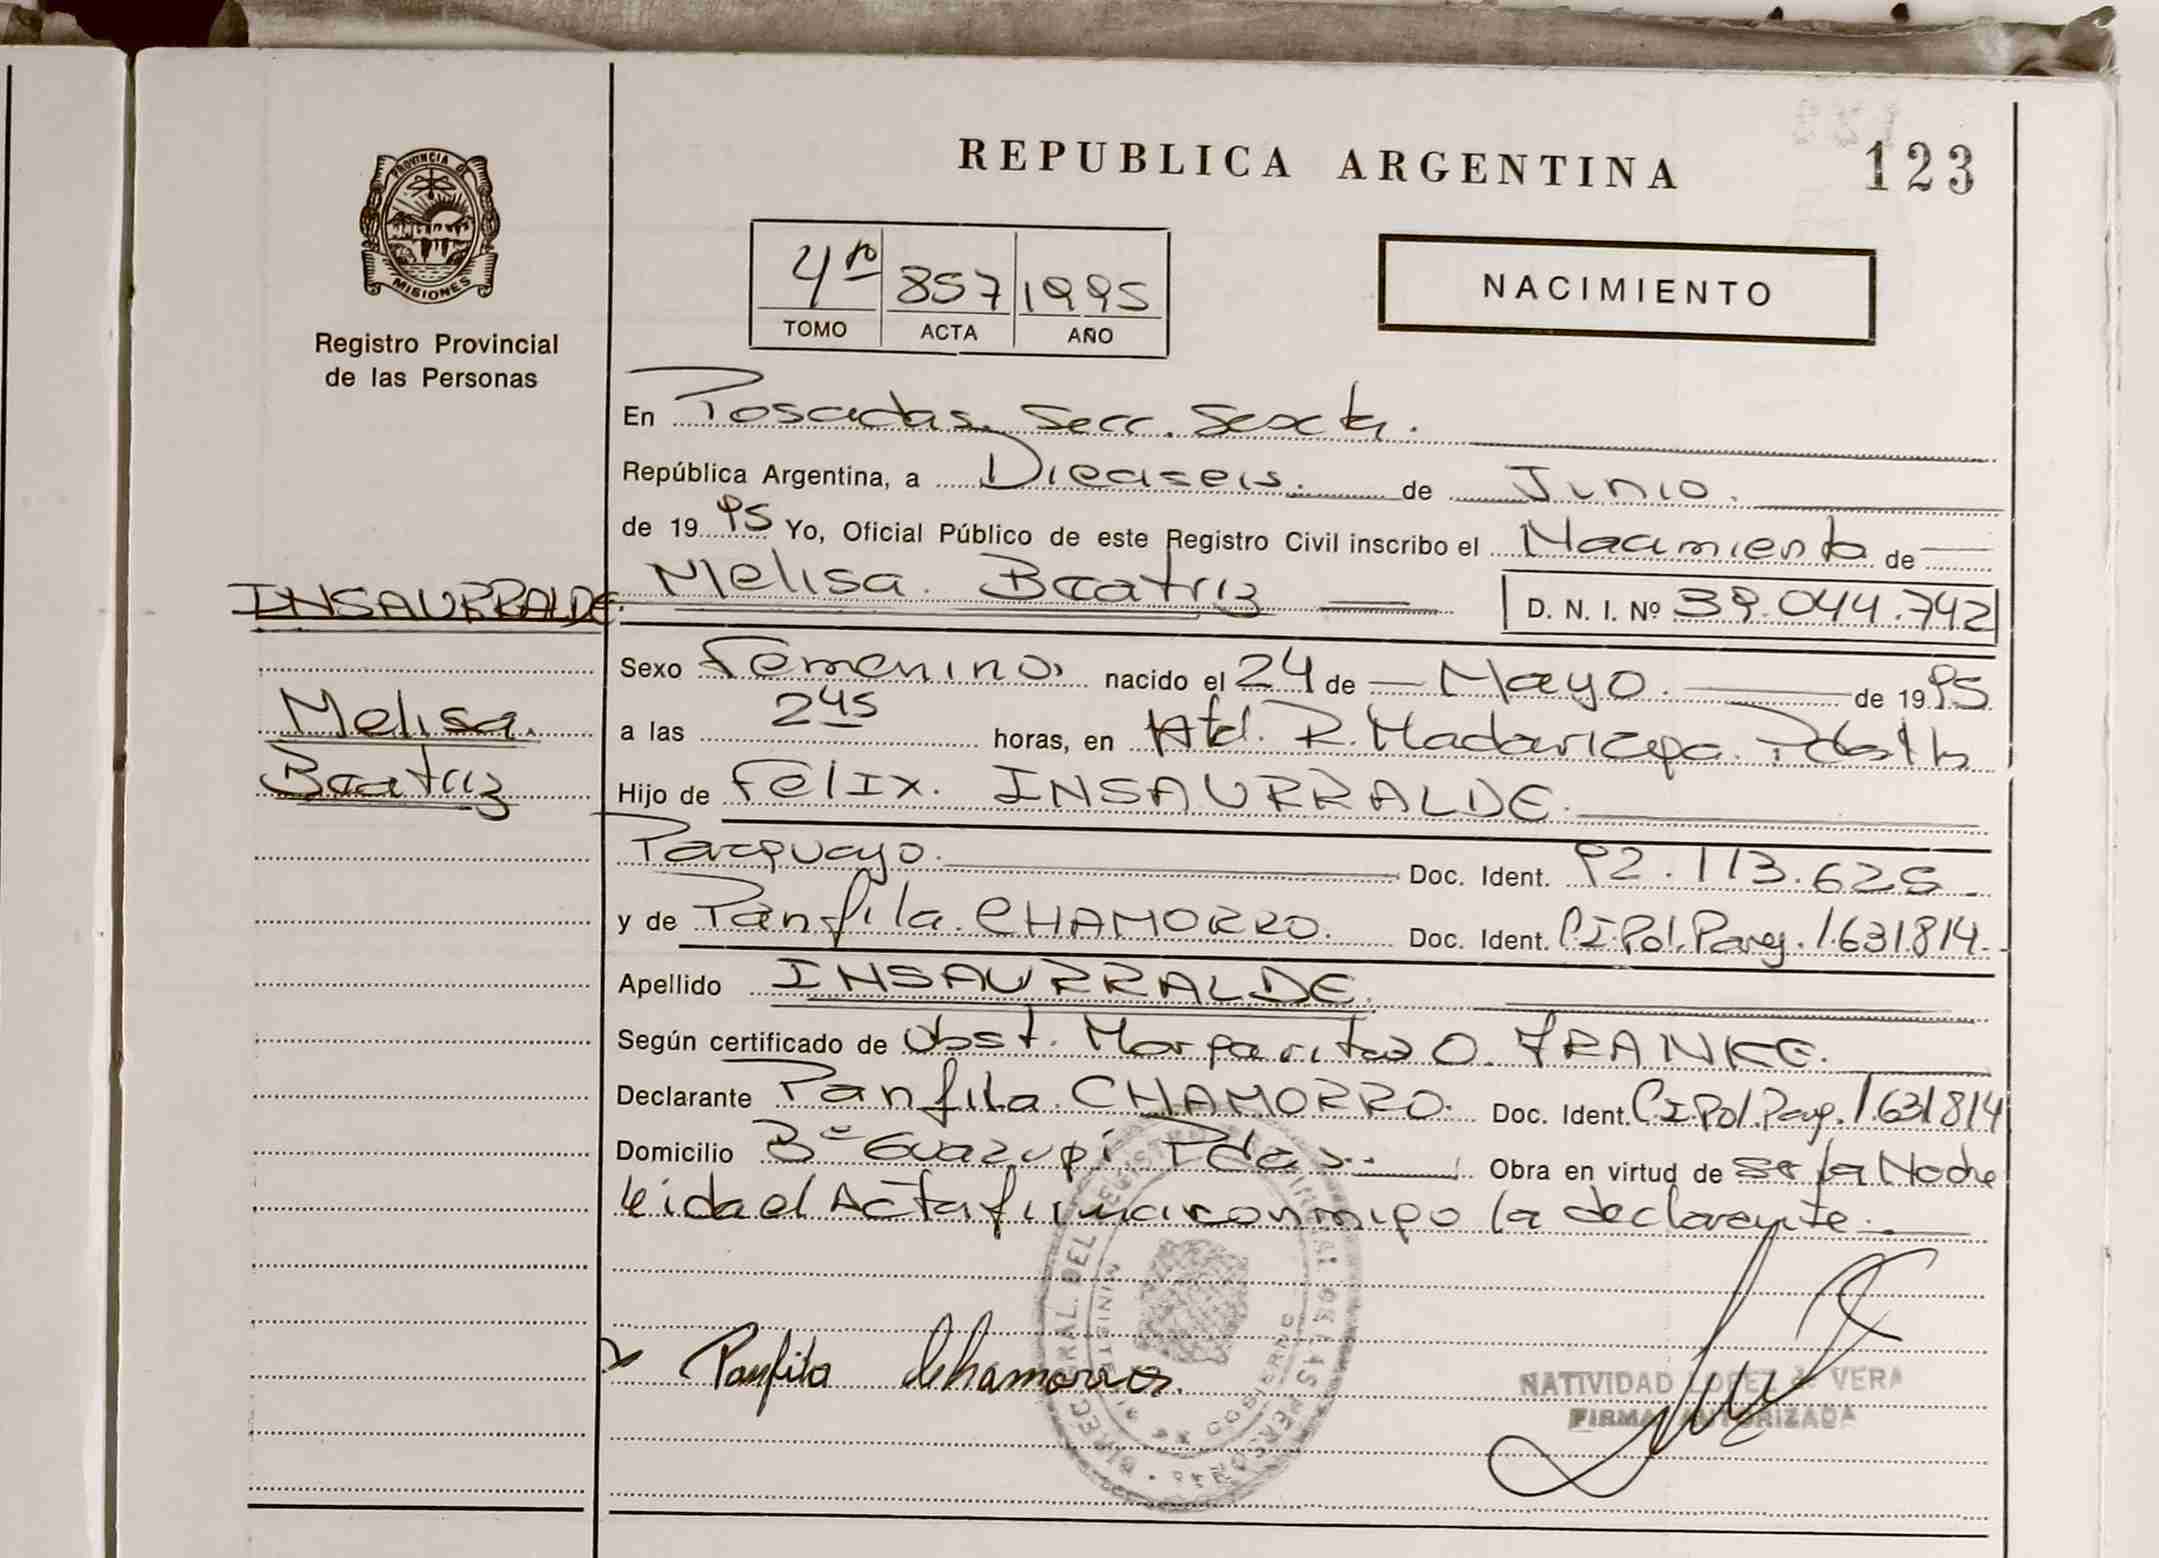 REPUBLICA ARGENTINA
123
PROVINCIA DE
MISIONES
Registro Provincial
de las Personas
4to 857 1995
TOMO ACTA AÑO
NACIMIENTO
En Posadas. Secc. Sexta.
República Argentina, a Dieciseis. de Junio.
de 1995 Yo, Oficial Público de este Registro Civil inscribo el Nacimiento de
INSAURRALDE.
Melisa
Beatriz
Melisa. Beatriz D. N. I. Nº 39.044.742
Sexo Femenino, nacido el 24 de Mayo. de 1995
a las 245 horas, en R. Madariaga.
Hijo de Felix. INSAURRALDE.
Paraguayo. Doc. Ident. 92.113.625
y de Panfila. CHAMORRO. Doc. Ident. C.I.Pol.Parag. 1.631.814
Apellido INSAURRALDE.
Según certificado de Obst. Margarita O. FRANKE.
Declarante Panfila. CHAMORRO. Doc. Ident. C.I.Pol.Parag. 1.631814
Domicilio Bº Guazupi Pdas. Obra en virtud de ser la Madre
leida el Acta firma conmigo la declarante.
Panfila Chamorro.
NATIVIDAD LOPEZ de VERA
FIRMA AUTORIZADA